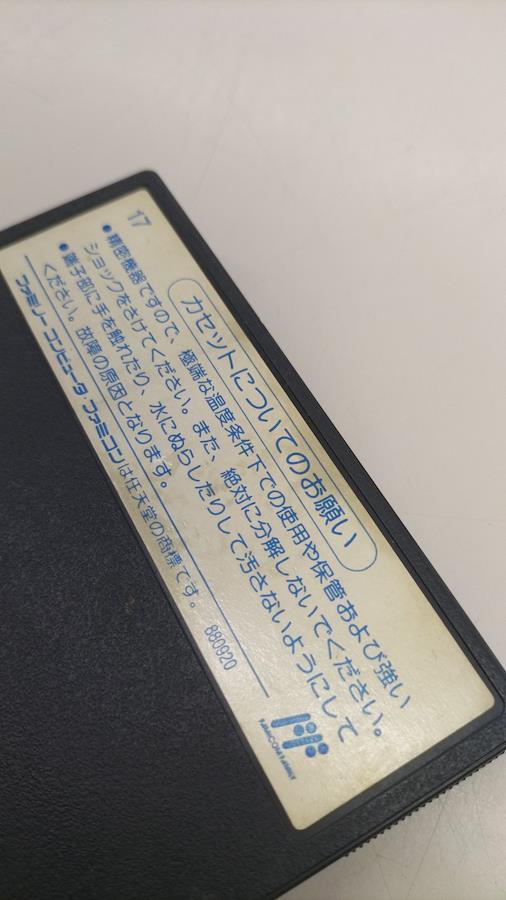 17
カセットについてのお願い
●精密機器ですので、極端な温度条件下での使用や保管および強い
ショックをさけてください。また、絶対に分解しないでください。
●端子部に手を触れたり、水にぬらしたりして汚さないようにして
ください。故障の原因となります。
ファミリーコンピュータ・ファミコンは任天堂の商標です。
880920
FAMICOM FAMILY